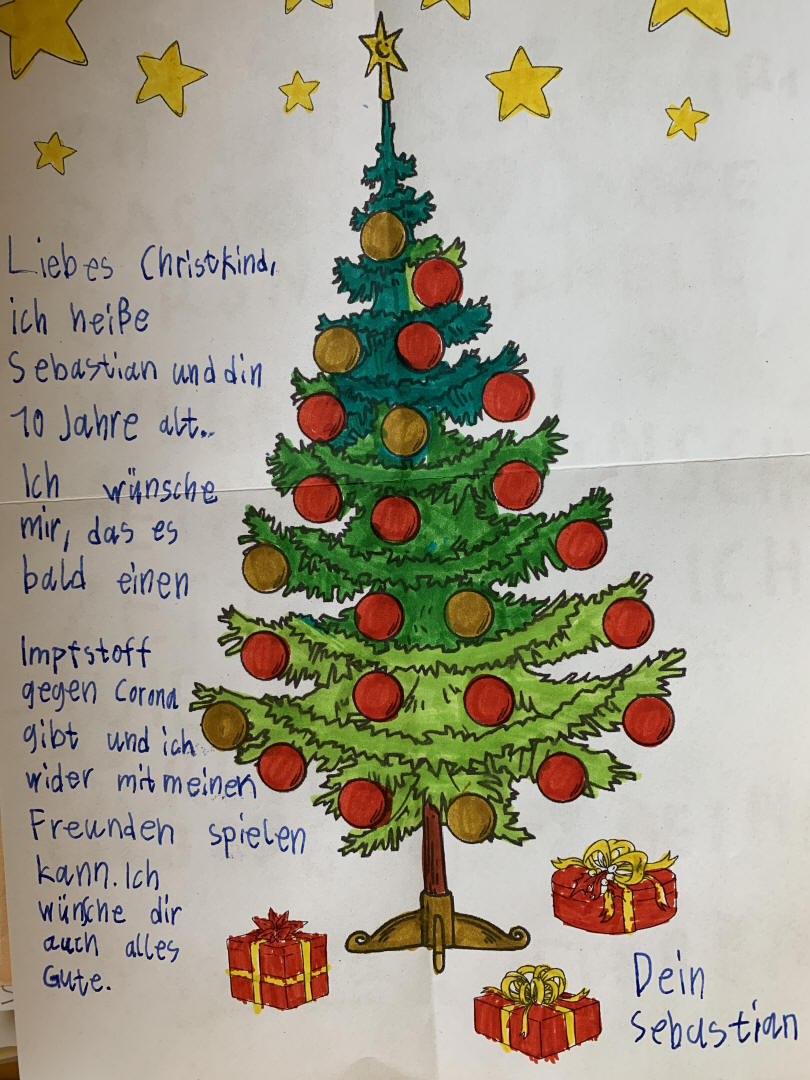 Liebes Christkind,
ich heiße
Sebastian und din
10 Jahre alt..
Ich wünsche
mir, das es
bald einen
Impfstoff
gegen Corona
gibt und ich
wider mit meinen
Freunden spielen
kann. Ich
wünsche dir
auch alles
Gute.
Dein
Sebastian